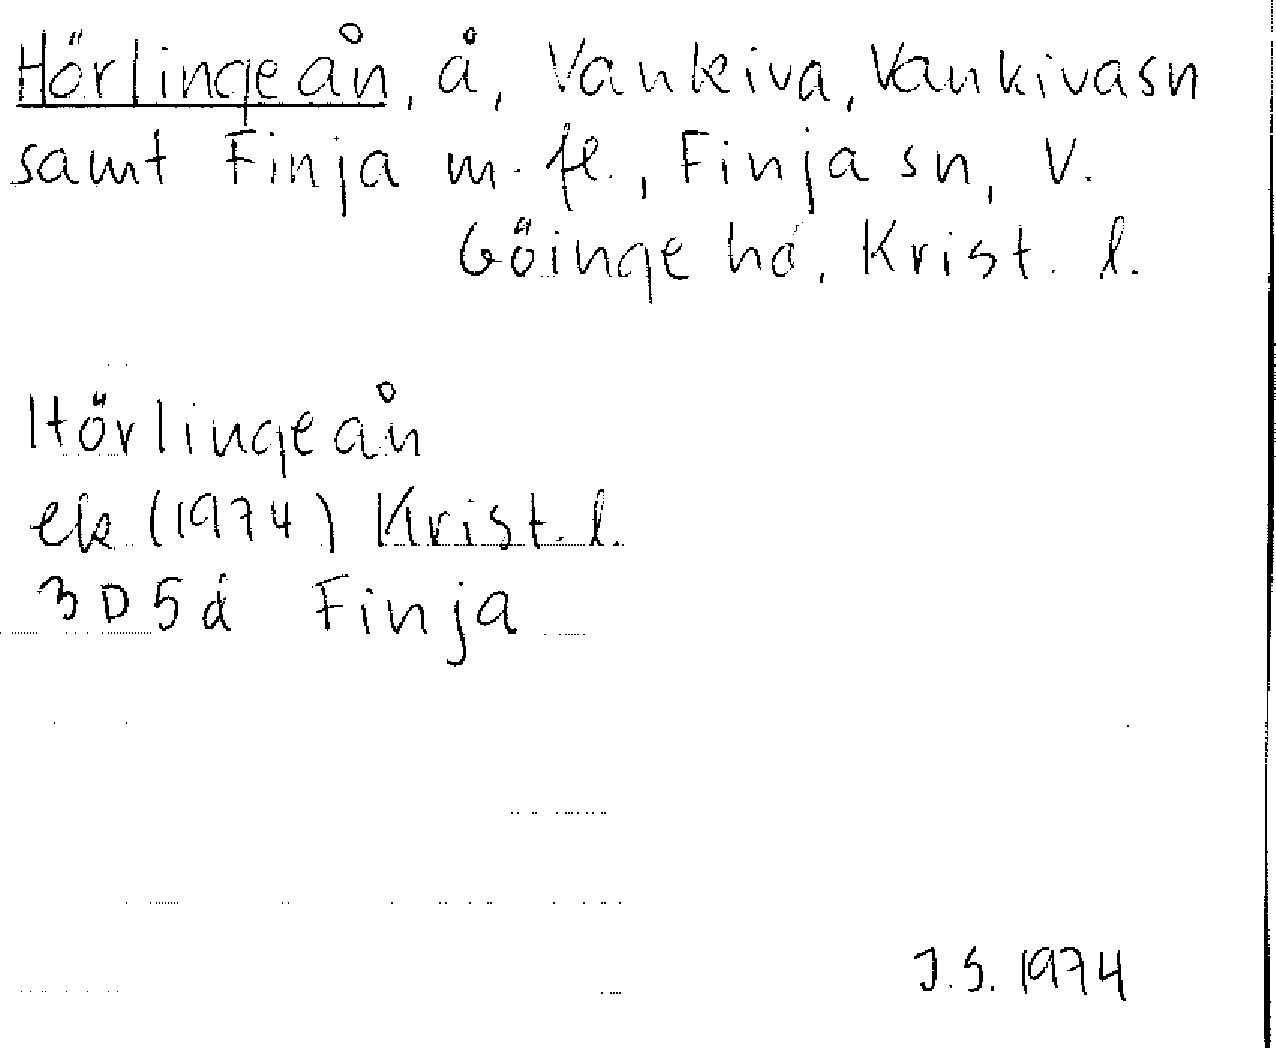 Hörlingeån, å, Vankiva, Vankiva sn
samt Finja m. fl., Finja sn, V.
Göinge hd, Krist. l.
Hörlingeån
ek (1974) Krist. l.
3D5d Finja
J.S. 1974